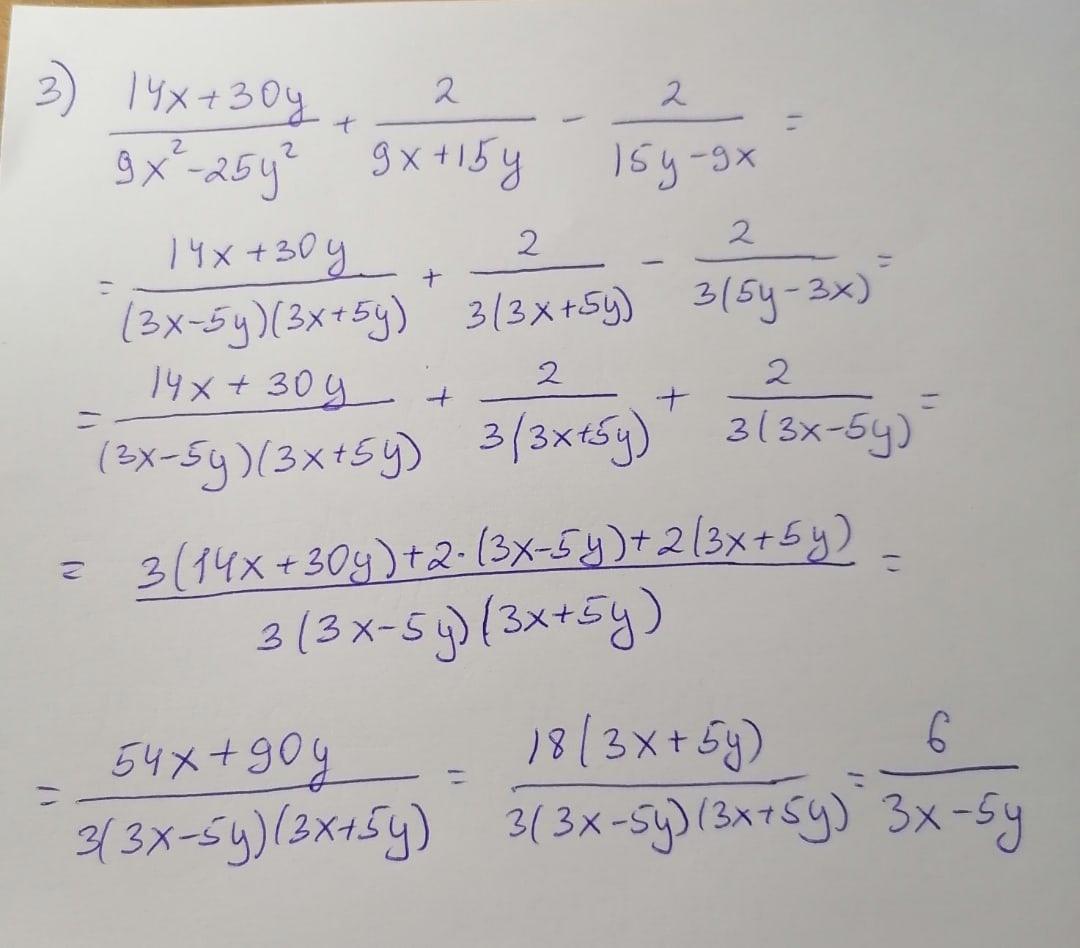 3) (14x+30y)/(9x²-25y²) + 2/(9x+15y) - 2/(15y-9x) =
= (14x+30y)/((3x-5y)(3x+5y)) + 2/(3(3x+5y)) - 2/(3(5y-3x)) =
= (14x+30y)/((3x-5y)(3x+5y)) + 2/(3(3x+5y)) + 2/(3(3x-5y)) =
= (3(14x+30y)+2·(3x-5y)+2(3x+5y))/(3(3x-5y)(3x+5y)) =
= (54x+90y)/(3(3x-5y)(3x+5y)) = (18(3x+5y))/(3(3x-5y)(3x+5y)) = 6/(3x-5y)